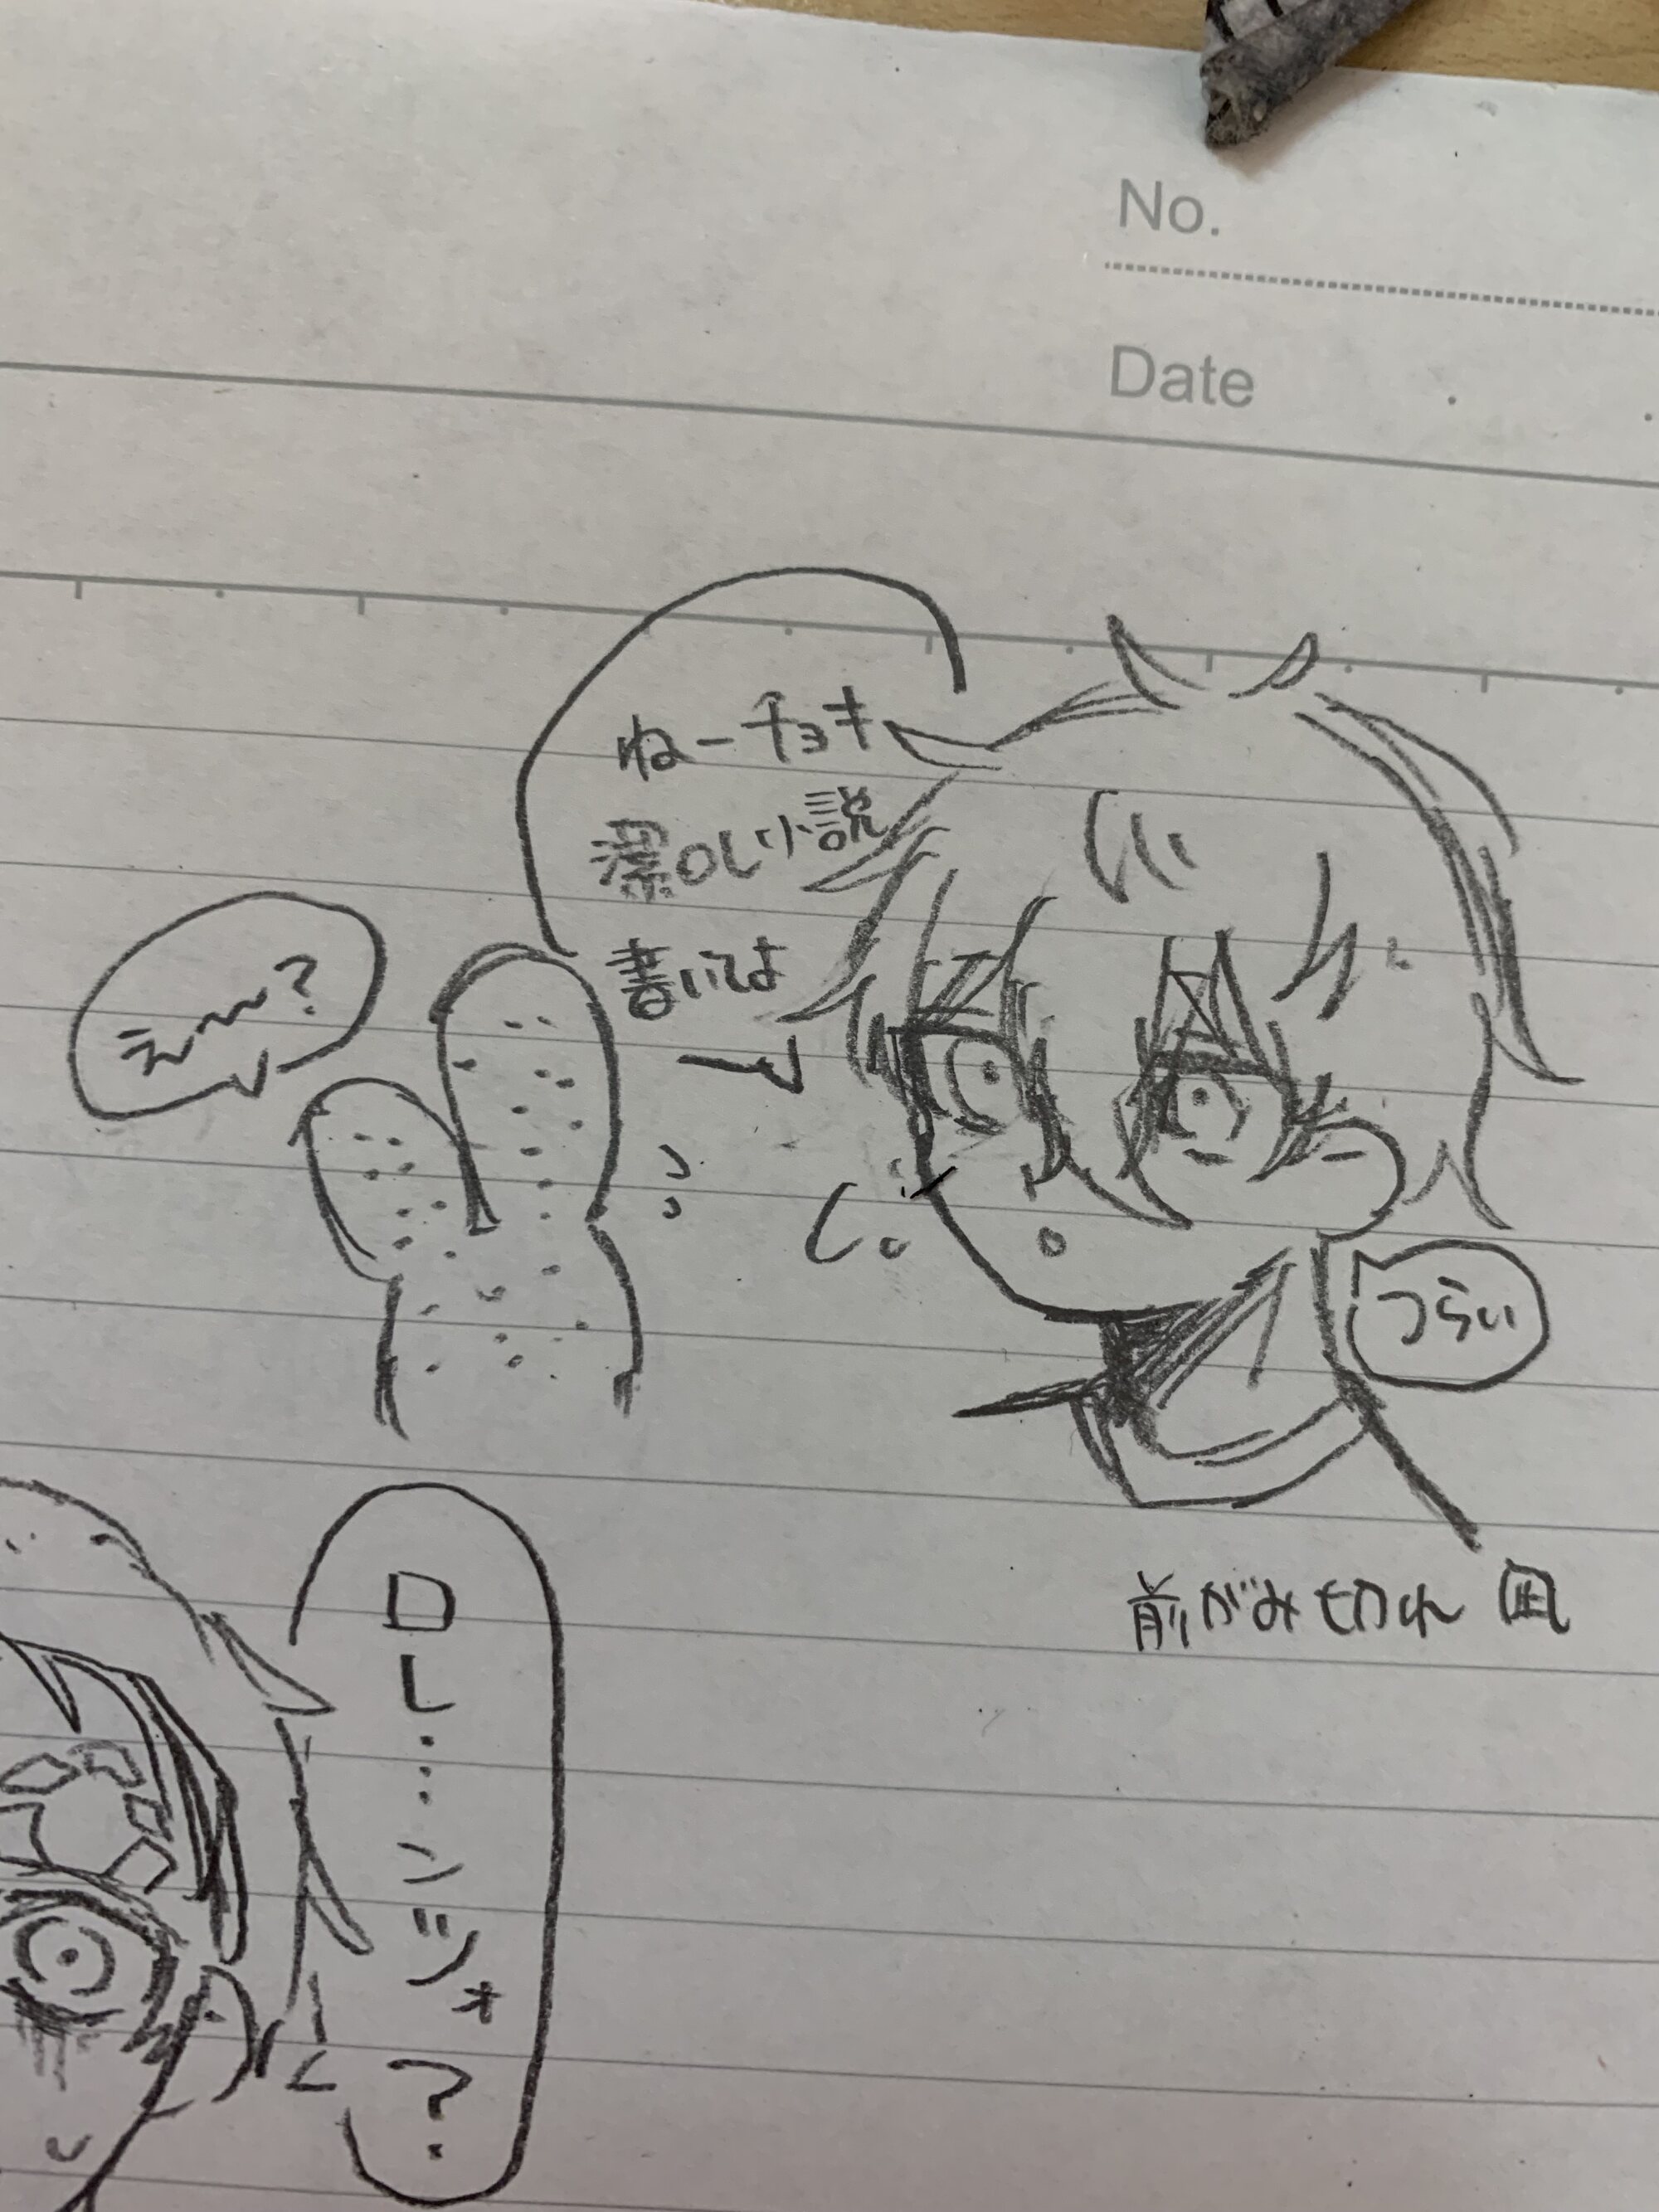 No.
Date
ねーチョキ
潔のし小説
書いてよ
えー〜?
じー
つらい
前がみ切れ 凪
ロレ……ンツォ?